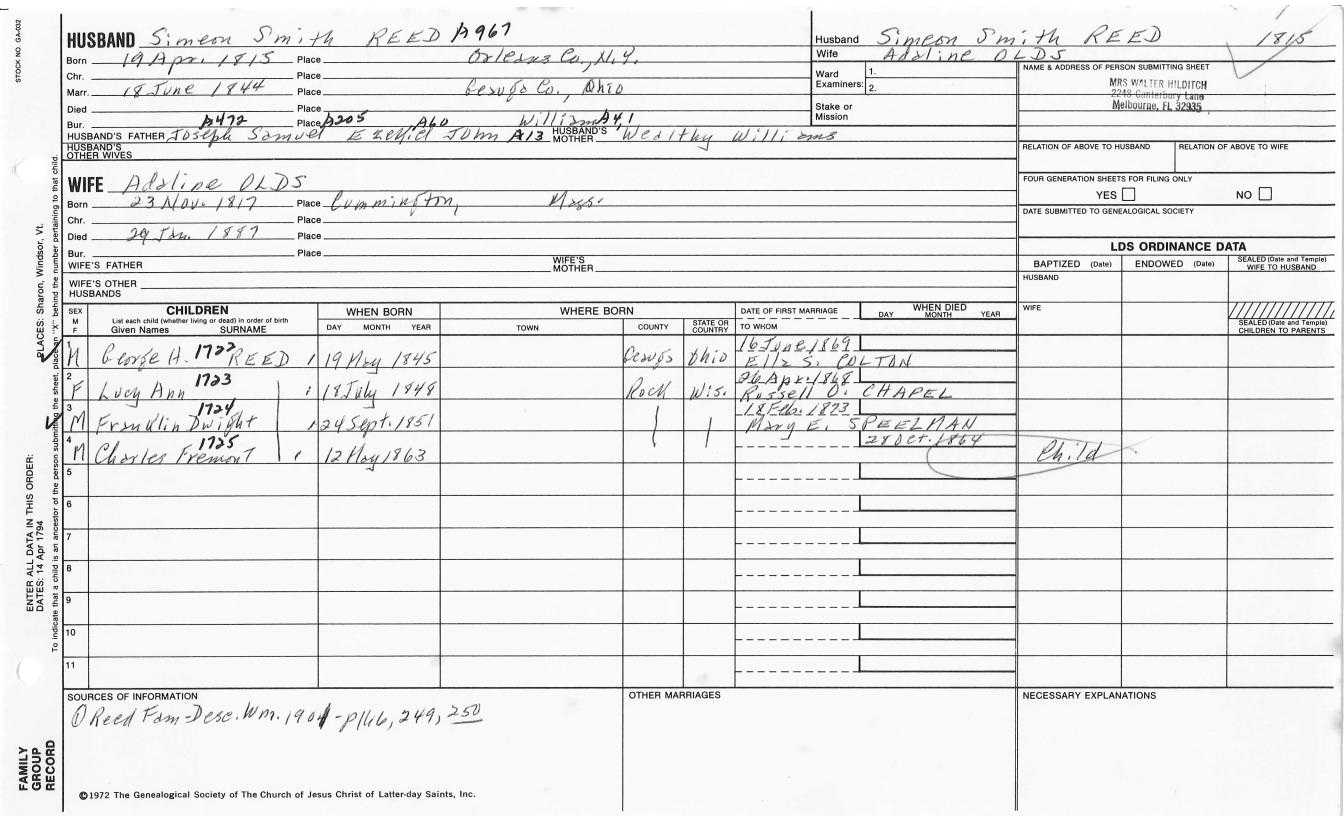 STOCK NO. GA-032
HUSBAND Simeon Smith REED A967
Born 19 Apr. 1815 Place Orleans Co., N.Y.
Chr. Place
Marr. 18 June 1844 Place Geauga Co., Ohio
Died Place
Bur. A472 Place A205 A60 William A4,1
HUSBAND'S FATHER Joseph Samuel Ezekiel John A13 HUSBAND'S MOTHER Wealthy Williams
HUSBAND'S OTHER WIVES
WIFE Adaline OLDS
Born 23 Nov. 1817 Place Cummington, Mass.
Chr. Place
Died 29 Jan. 1887 Place
Bur. Place
WIFE'S FATHER WIFE'S MOTHER
WIFE'S OTHER HUSBANDS
Husband Simeon Smith REED 1815
Wife Adaline OLDS
Ward Examiners: 1. 2.
Stake or Mission
NAME & ADDRESS OF PERSON SUBMITTING SHEET
MRS WALTER HILDITCH
2248 Canterbury Lane
Melbourne, FL 32935
RELATION OF ABOVE TO HUSBAND RELATION OF ABOVE TO WIFE
FOUR GENERATION SHEETS FOR FILING ONLY
YES NO
DATE SUBMITTED TO GENEALOGICAL SOCIETY
LDS ORDINANCE DATA
BAPTIZED (Date) ENDOWED (Date) SEALED (Date and Temple) WIFE TO HUSBAND
HUSBAND
WIFE
SEALED (Date and Temple) CHILDREN TO PARENTS
SEX M F
CHILDREN
List each child (whether living or dead) in order of birth
Given Names SURNAME
WHEN BORN
DAY MONTH YEAR
WHERE BORN
TOWN COUNTY STATE OR COUNTRY
DATE OF FIRST MARRIAGE
TO WHOM
WHEN DIED
DAY MONTH YEAR
1 M George H. 1722 REED 19 May 1845 Geauga Ohio 16 June 1869
Ella S. COLTON
2 F Lucy Ann 1723 18 July 1848 Rock Wis. 26 Apr. 1868
Russell O. CHAPEL
3 M Franklin Dwight 1724 24 Sept. 1851 18 Feb. 1873
Mary E. SPEELMAN
4 M Charles Fremont 1725 12 May 1863 28 Oct. 1864 Child
5
6
7
8
9
10
11
SOURCES OF INFORMATION
① Reed Fam-Desc. Wm. 1901 - p166, 249, 250
OTHER MARRIAGES
NECESSARY EXPLANATIONS
©1972 The Genealogical Society of The Church of Jesus Christ of Latter-day Saints, Inc.
FAMILY GROUP RECORD
ENTER ALL DATA IN THIS ORDER:
DATES: 14 Apr 1794 PLACES: Sharon, Windsor, Vt.
To indicate that a child is an ancestor of the person submitting the sheet, place an "X" behind the number pertaining to that child.